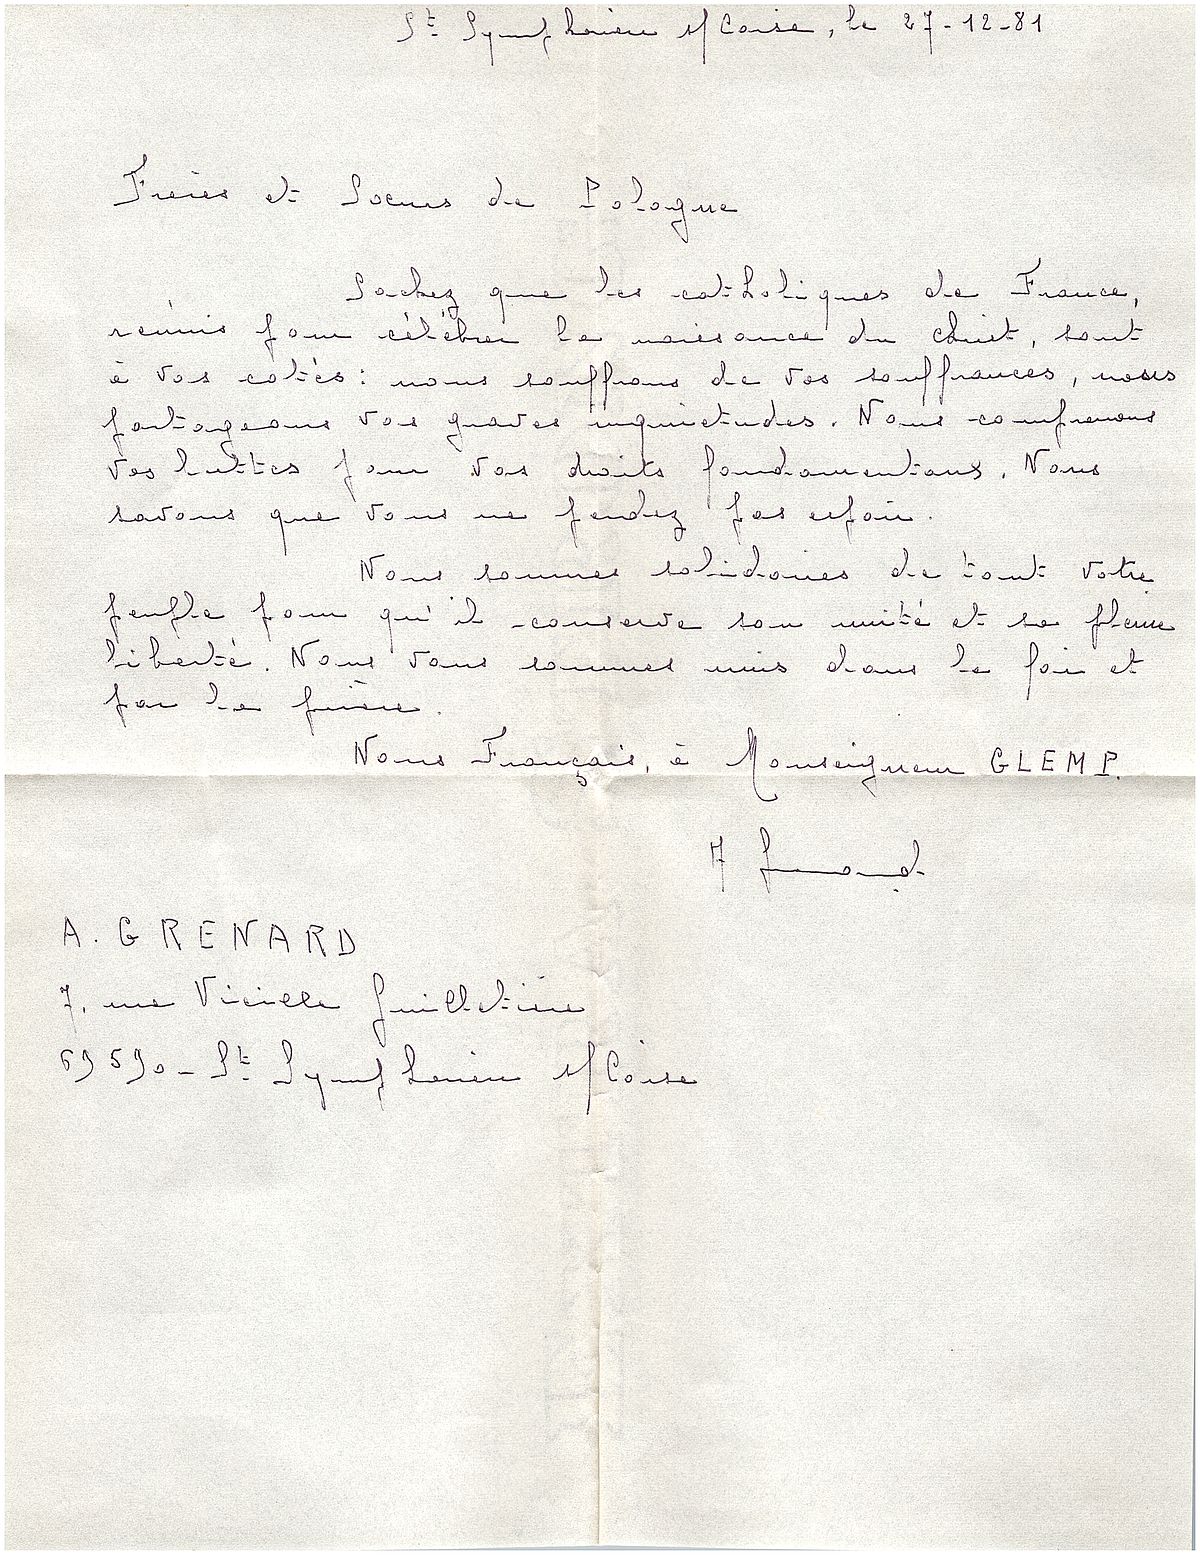 St Symphorien s/ Coise, le 27-12-81
Frères et Soeurs de Pologne
Sachez que les catholiques de France,
réunis pour célébrer la naissance du Christ, sont
à vos cotés : nous souffrons de vos souffrances, nous
partageons vos graves inquietudes. Nous comprenons
vos luttes pour vos droits fondamentaux. Nous
savons que vous ne perdez pas espoir.
Nous sommes solidaires de tout votre
peuple pour qu'il conserve son unité et sa pleine
liberté. Nous vous sommes unis dans la foi et
par la prière.
Nous Français, à Monseigneur GLEMP.
A Grenard
A. GRENARD
7, rue Vieille Guilletière
69590 - St Symphorien s/ Coise